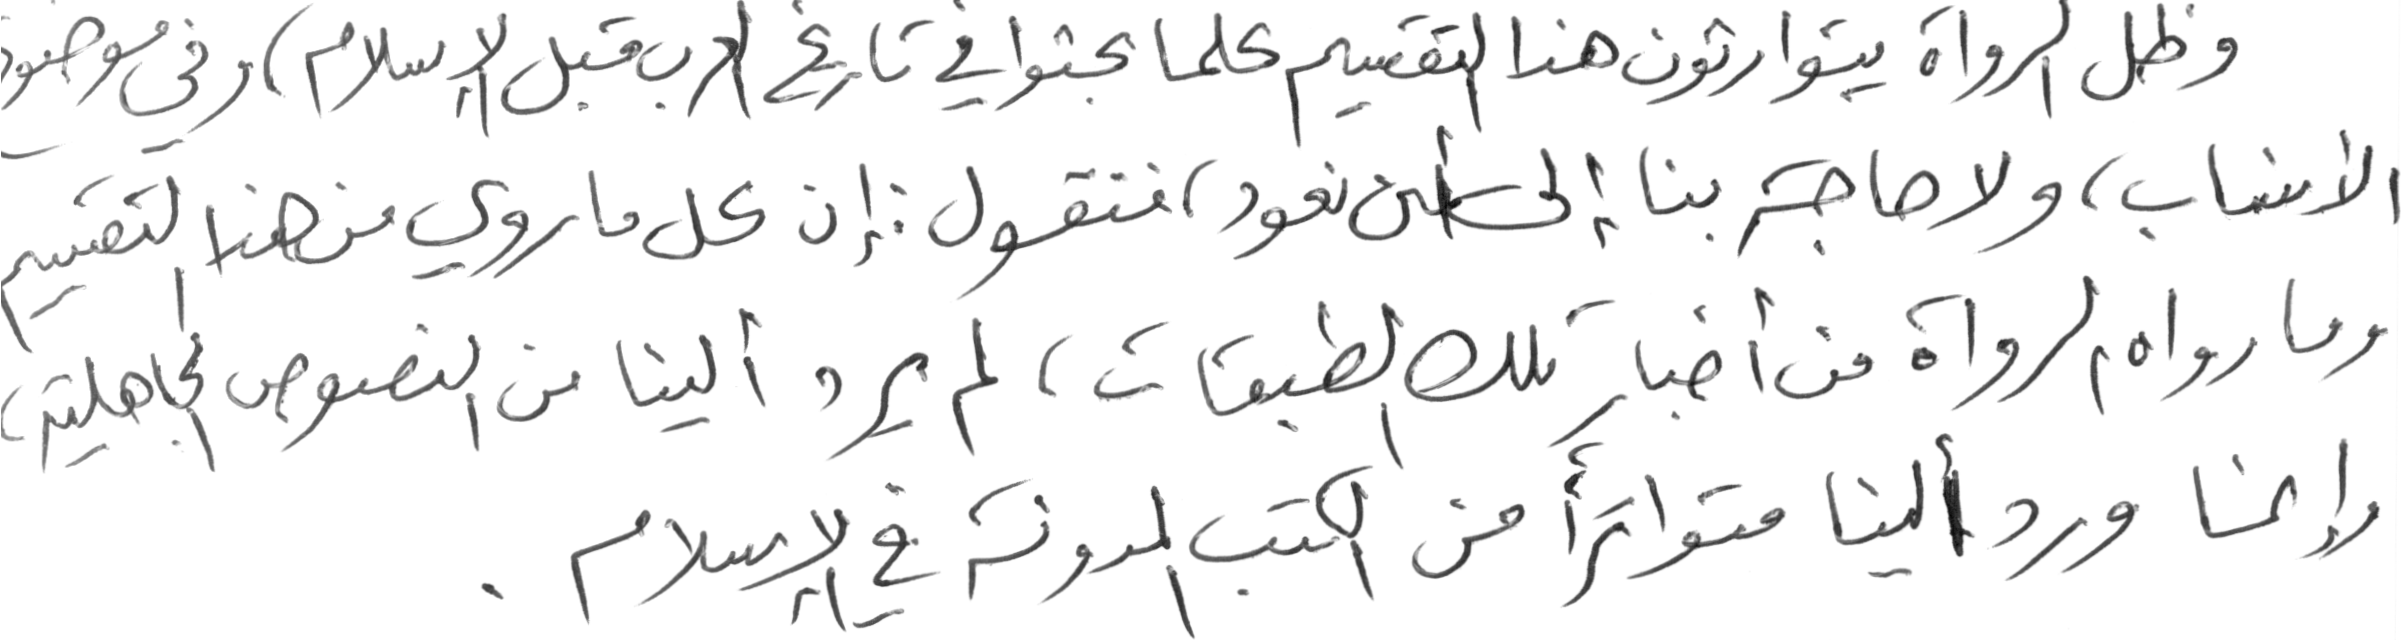 وظل الرواة يتوارثون هذا التقسيم كلما بحثوا في تاريخ العرب قبل الإسلام، وفي موضوع
الأنساب، ولا حاجة بنا إلى أن نعود، فنقول: إن كل ما روي من هذا التقسيم
وما رواه الرواة من أخبار تلك الطبقات، لم يرد ألينا من النصوص الجاهلية،
وإنما ورد ألينا متواترأً من الكتب المدونة في الإسلام.